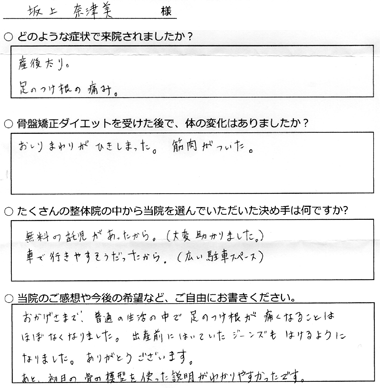 坂上 奈津美 様
○ どのような症状で来院されましたか?
産後太り。
足のつけ根の痛み。
○ 骨盤矯正ダイエットを受けた後で、体の変化はありましたか?
おしりまわりがひきしまった。 筋肉がついた。
○ たくさんの整体院の中から当院を選んでいただいた決め手は何ですか?
無料の託児があったから。(大変助かりました。)
車で行きやすそうだったから。(広い駐車スペース)
○ 当院のご感想や今後の希望など、ご自由にお書きください。
おかげさまで、普通の生活の中で足のつけ根が痛くなることは
ほぼなくなりました。 出産前にはいていたジーンズもはけるように
なりました。 ありがとうございます。
あと、初日の骨の模型を使った説明がわかりやすかったです。